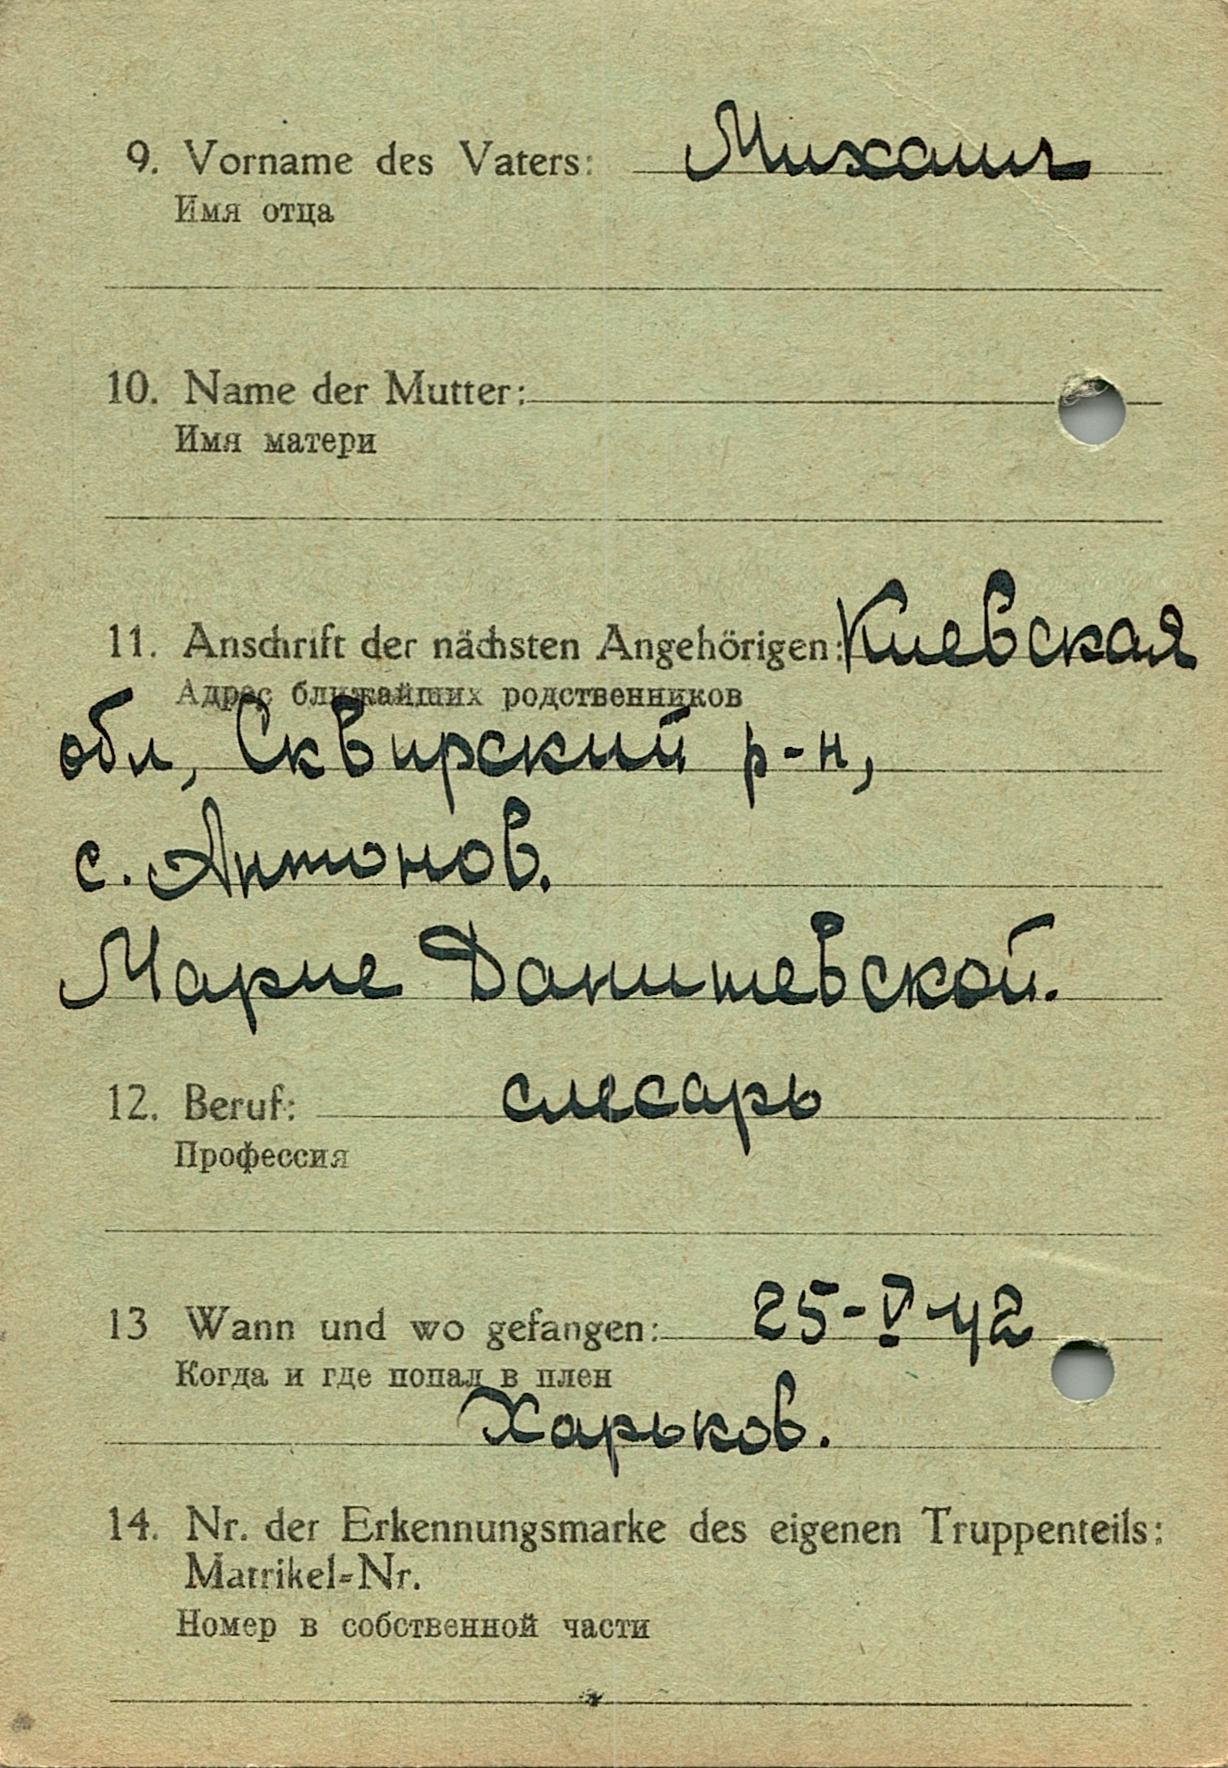 9. Vorname des Vaters: Михаил
Имя отца
10. Name der Mutter:
Имя матери
11. Anschrift der nächsten Angehörigen: Киевская
Адрес ближайших родственников
обл, Сквирский р-н,
с. Антонов.
Марие Данишевской.
12. Beruf: слесарь
Профессия
13 Wann und wo gefangen: 25-V-42
Когда и где попал в плен
Харьков.
14. Nr. der Erkennungsmarke des eigenen Truppenteils:
Matrikel-Nr.
Номер в собственной части